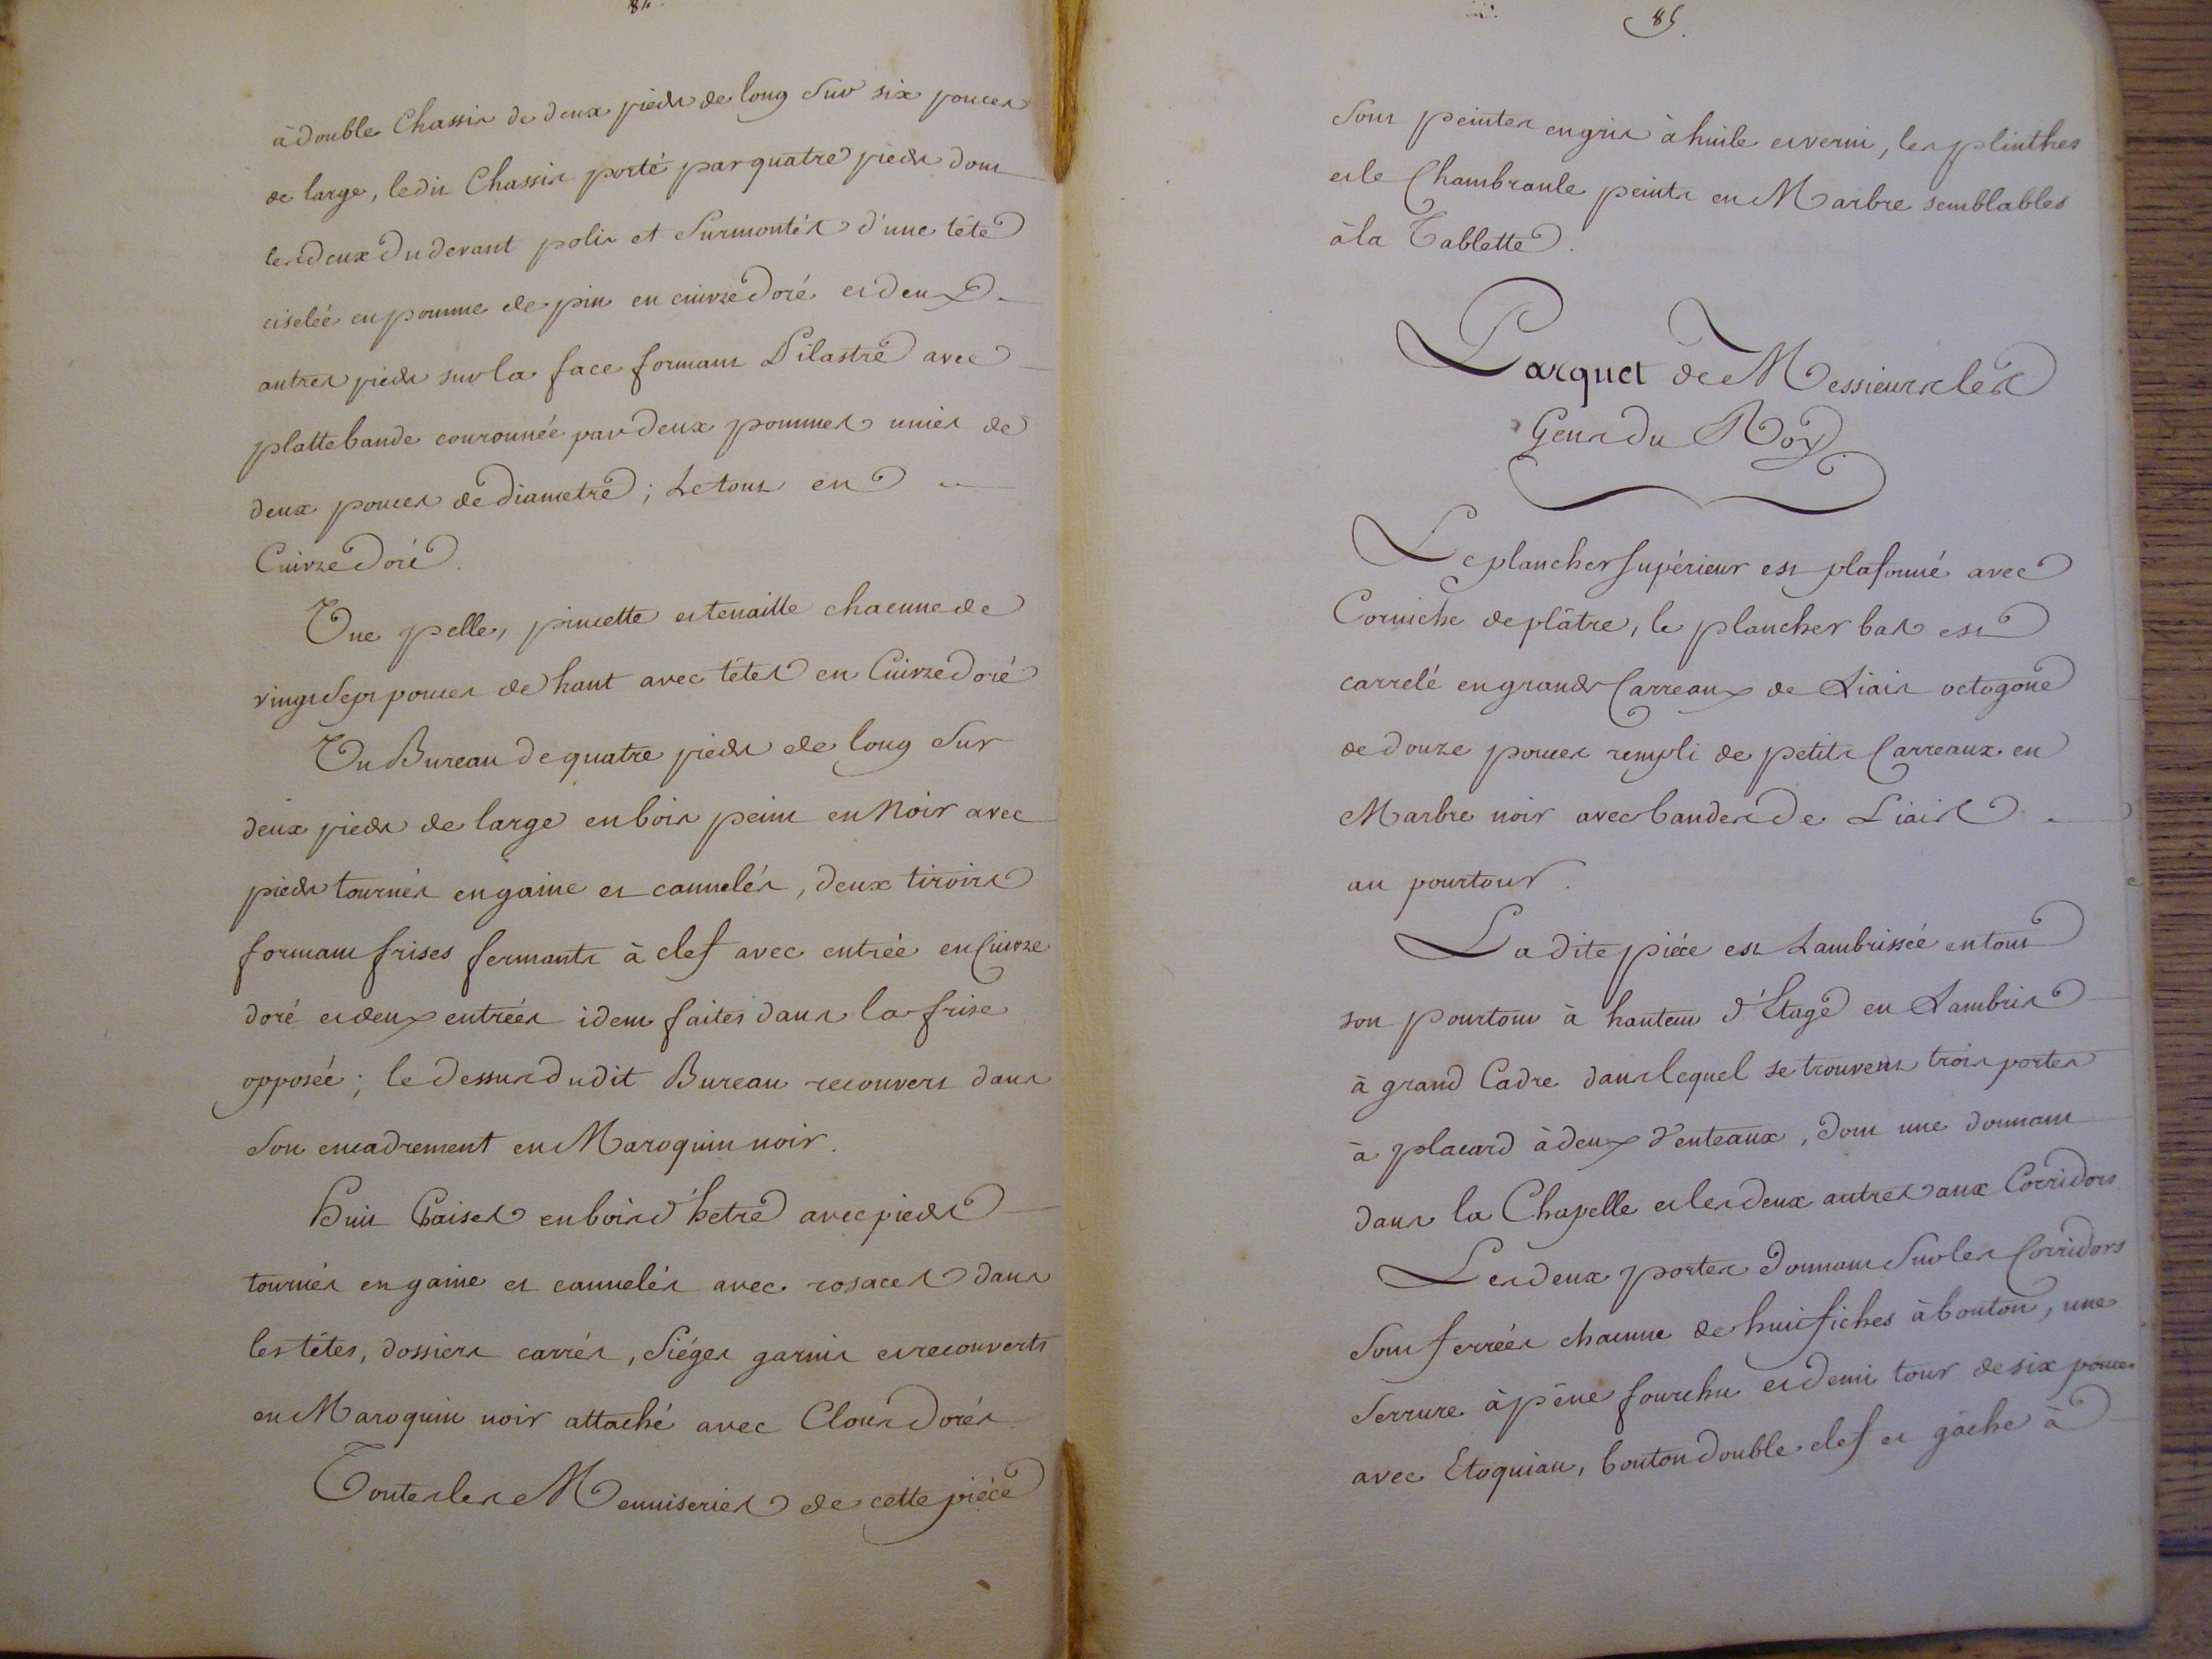 84.
à double Chassis de deux pieds de long sur six pouces
de large, ledit Chassis porté par quatre pieds dont
les deux du devant polis et surmontés d'une tête
ciselée en pomme de pin en cuivre doré et deux
autres pieds sur la face formant Pilastre avec
platte bande couronnée par deux pommes unies de
deux pouces de diametre; Le tout en
Cuivre doré.
Une pelle, pincette et tenaille chacune de
vingt sept pouces de haut avec têtes en Cuivre doré
Un Bureau de quatre pieds de long sur
deux pieds de large en bois peint en Noir avec
pieds tournés en gaine et cannelés, deux tiroirs
formant frises fermants à clef avec entrée en Cuivre
doré et deux entrées idem faites dans la frise
opposée; le dessus dudit Bureau recouvert dans
son encadrement en Maroquin noir.
Huit Chaises en bois d'hetre avec pieds
tournés en gaine et cannelés avec rosaces dans
les têtes, dossiers carrés, Siéges garnis et recouverts
en Maroquin noir attaché avec Clous dorés
Toutes les Menuiseries de cette piéce
85.
sont peintes en gris à huile et verni, les plinthes
et le Chambranle peints en Marbre semblables
à la Tablette.
Parquet de Messieurs les
Gens du Roy
Le plancher supérieur est plafonné avec
Corniche de plâtre, le plancher bas est
carrelé en grands Carreaux de Liais octogone
de douze pouces rempli de petits Carreaux en
Marbre noir avec bandes de Liais
au pourtour.
La dite piéce est Lambrissée en tout
son pourtour à hauteur d'Etage en Lambris
à grand Cadre dans lequel se trouvent trois portes
à placard à deux Venteaux, dont une donnant
dans la Chapelle et les deux autres aux Corridors
Les deux portes donnant sur les Corridors
sont ferrées chacune de huit fiches à bouton, une
Serrure à pêne fourchu et demi tour de six pouces
avec Etoquiau, bouton double clef et gâche à